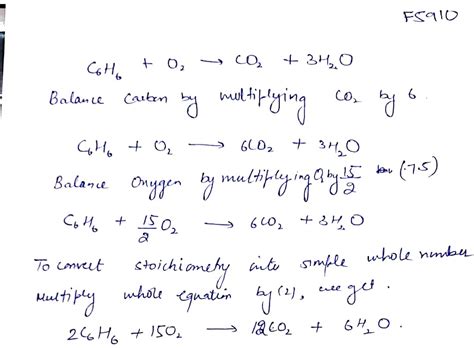 F5910
C₆H₆ + O₂ → CO₂ + 3H₂O
Balance Carbon by multiplying CO₂ by 6.
C₆H₆ + O₂ → 6CO₂ + 3H₂O
Balance Oxygen by multiplying O₂ by 15/2 (7.5)
C₆H₆ + 15/2 O₂ → 6CO₂ + 3H₂O
To convert stoichiometry into simple whole number
Multiply whole equation by (2), we get.
2C₆H₆ + 15O₂ → 12CO₂ + 6H₂O.